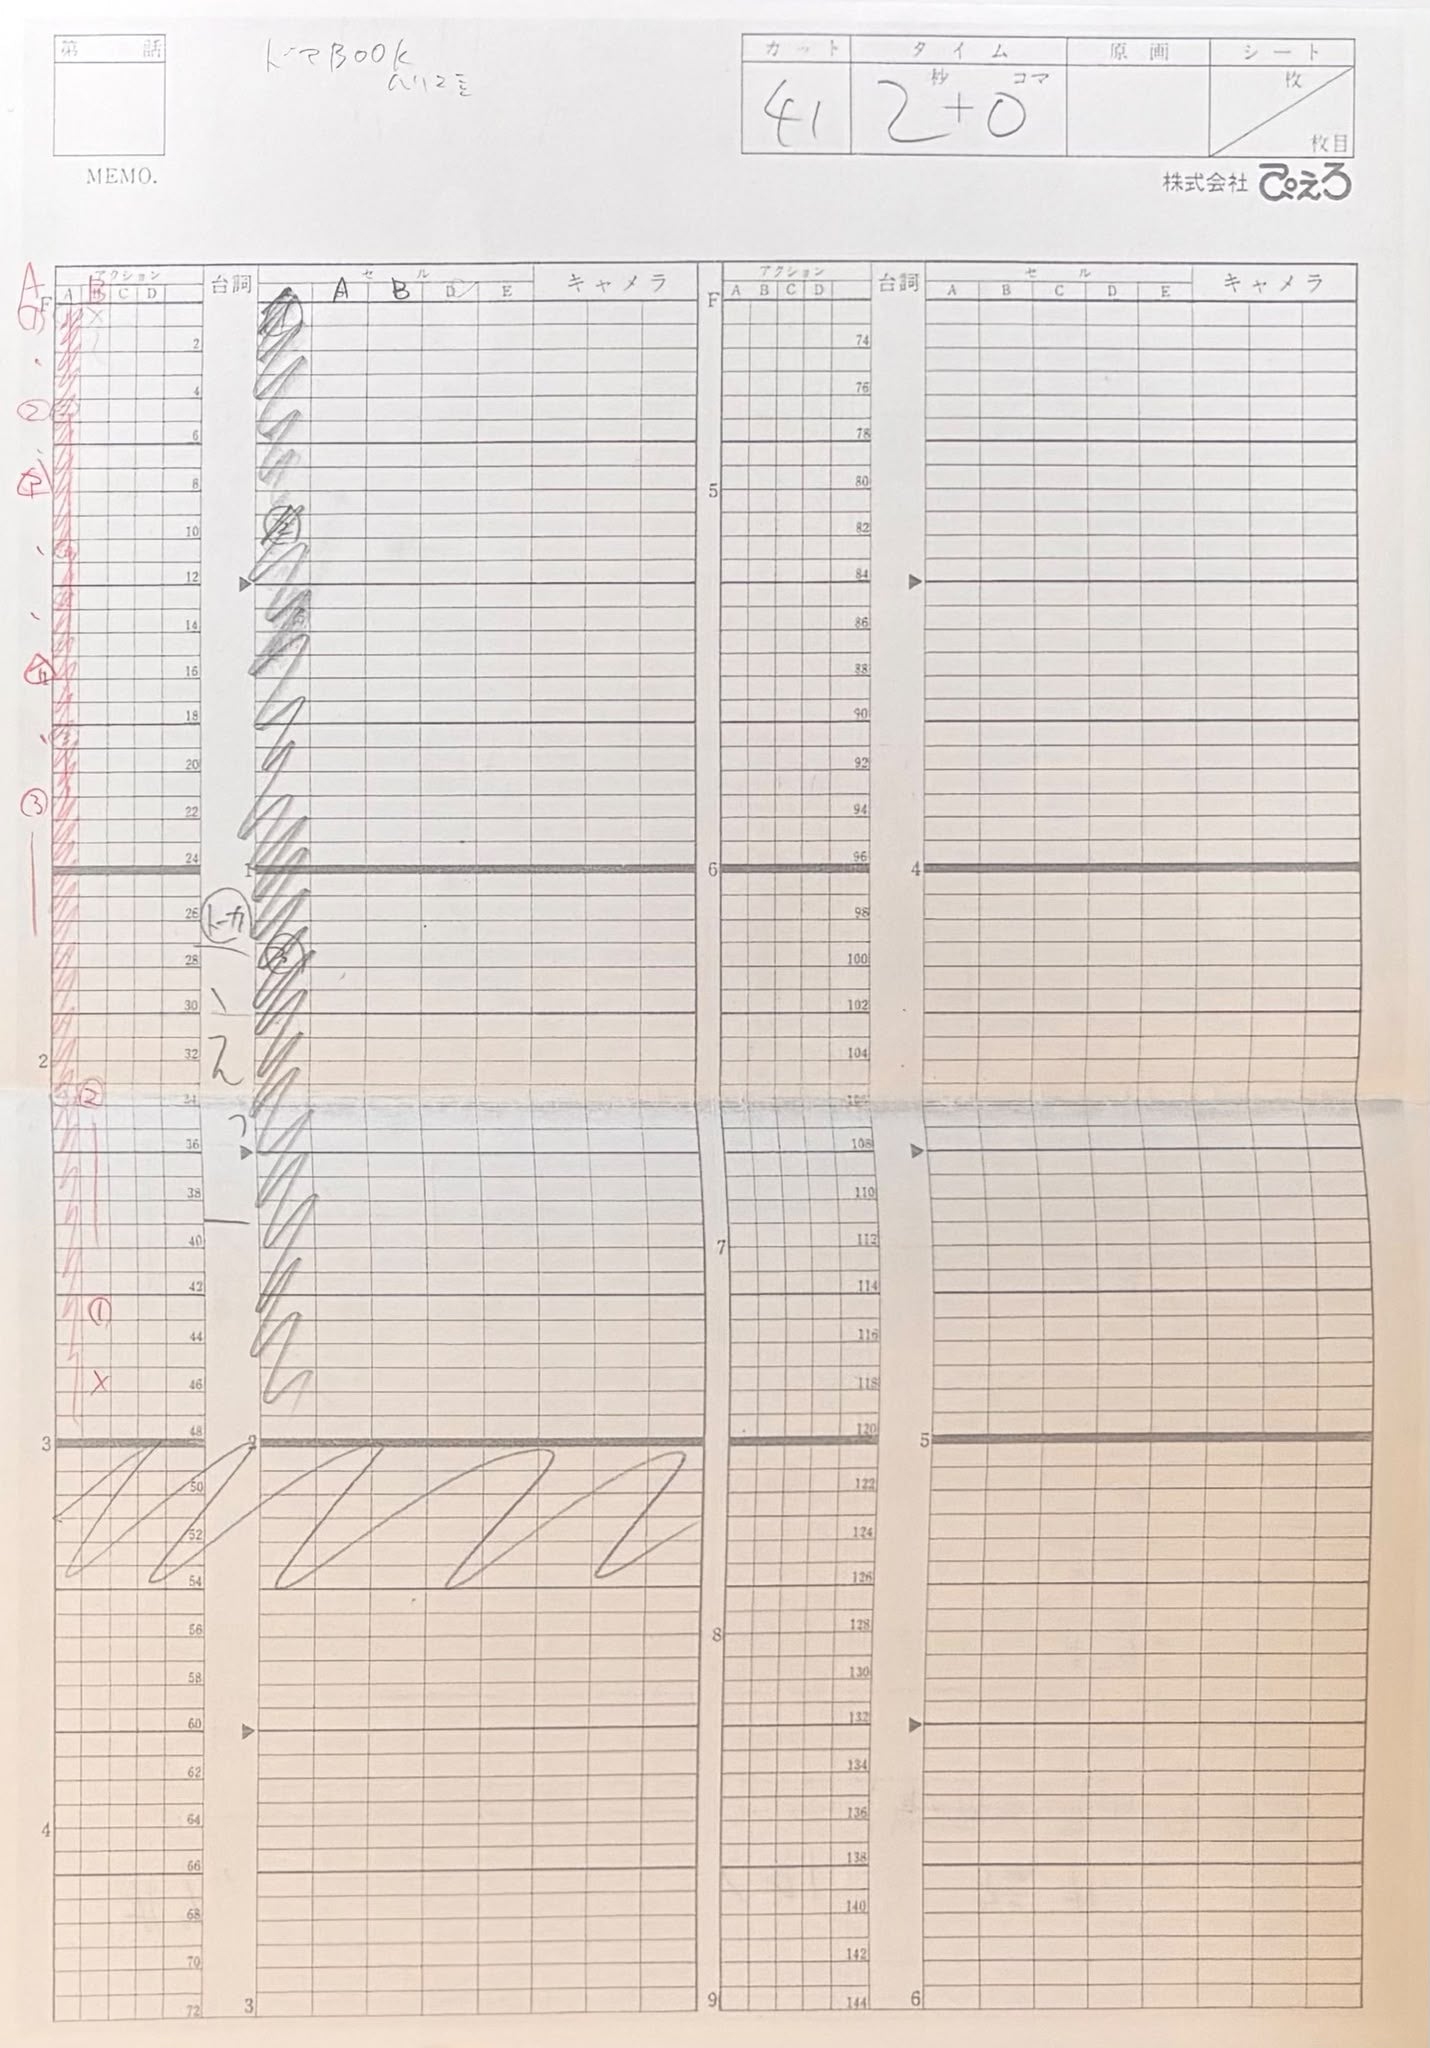 第 話
MEMO.
BOOK
カット タイム 原画 シート
41 秒 コマ 枚
2+0
枚目
株式会社 ぴえろ
アクション 台詞 セル キャメラ アクション 台詞 セル キャメラ
A B
F A B C D A B D E F A B C D A B C D E
① ×
2 74
②
4 76
6 78
8 5 80
②
10 82
12 84
14 86
16 88
18 90
20 92
③
22 94
24 1 6 96 4
26 トーカ 98
③
28 100
30 、 102
2 32 え 104
② 34 106
っ
36 108
38 110
40 7 112
42 114
①
44 116
× 46 118
3 48 2 120 5
50 122
52 124
54 126
56 8 128
58 130
60 132
62 134
4 64 136
66 138
68 140
70 142
72 3 9 144 6